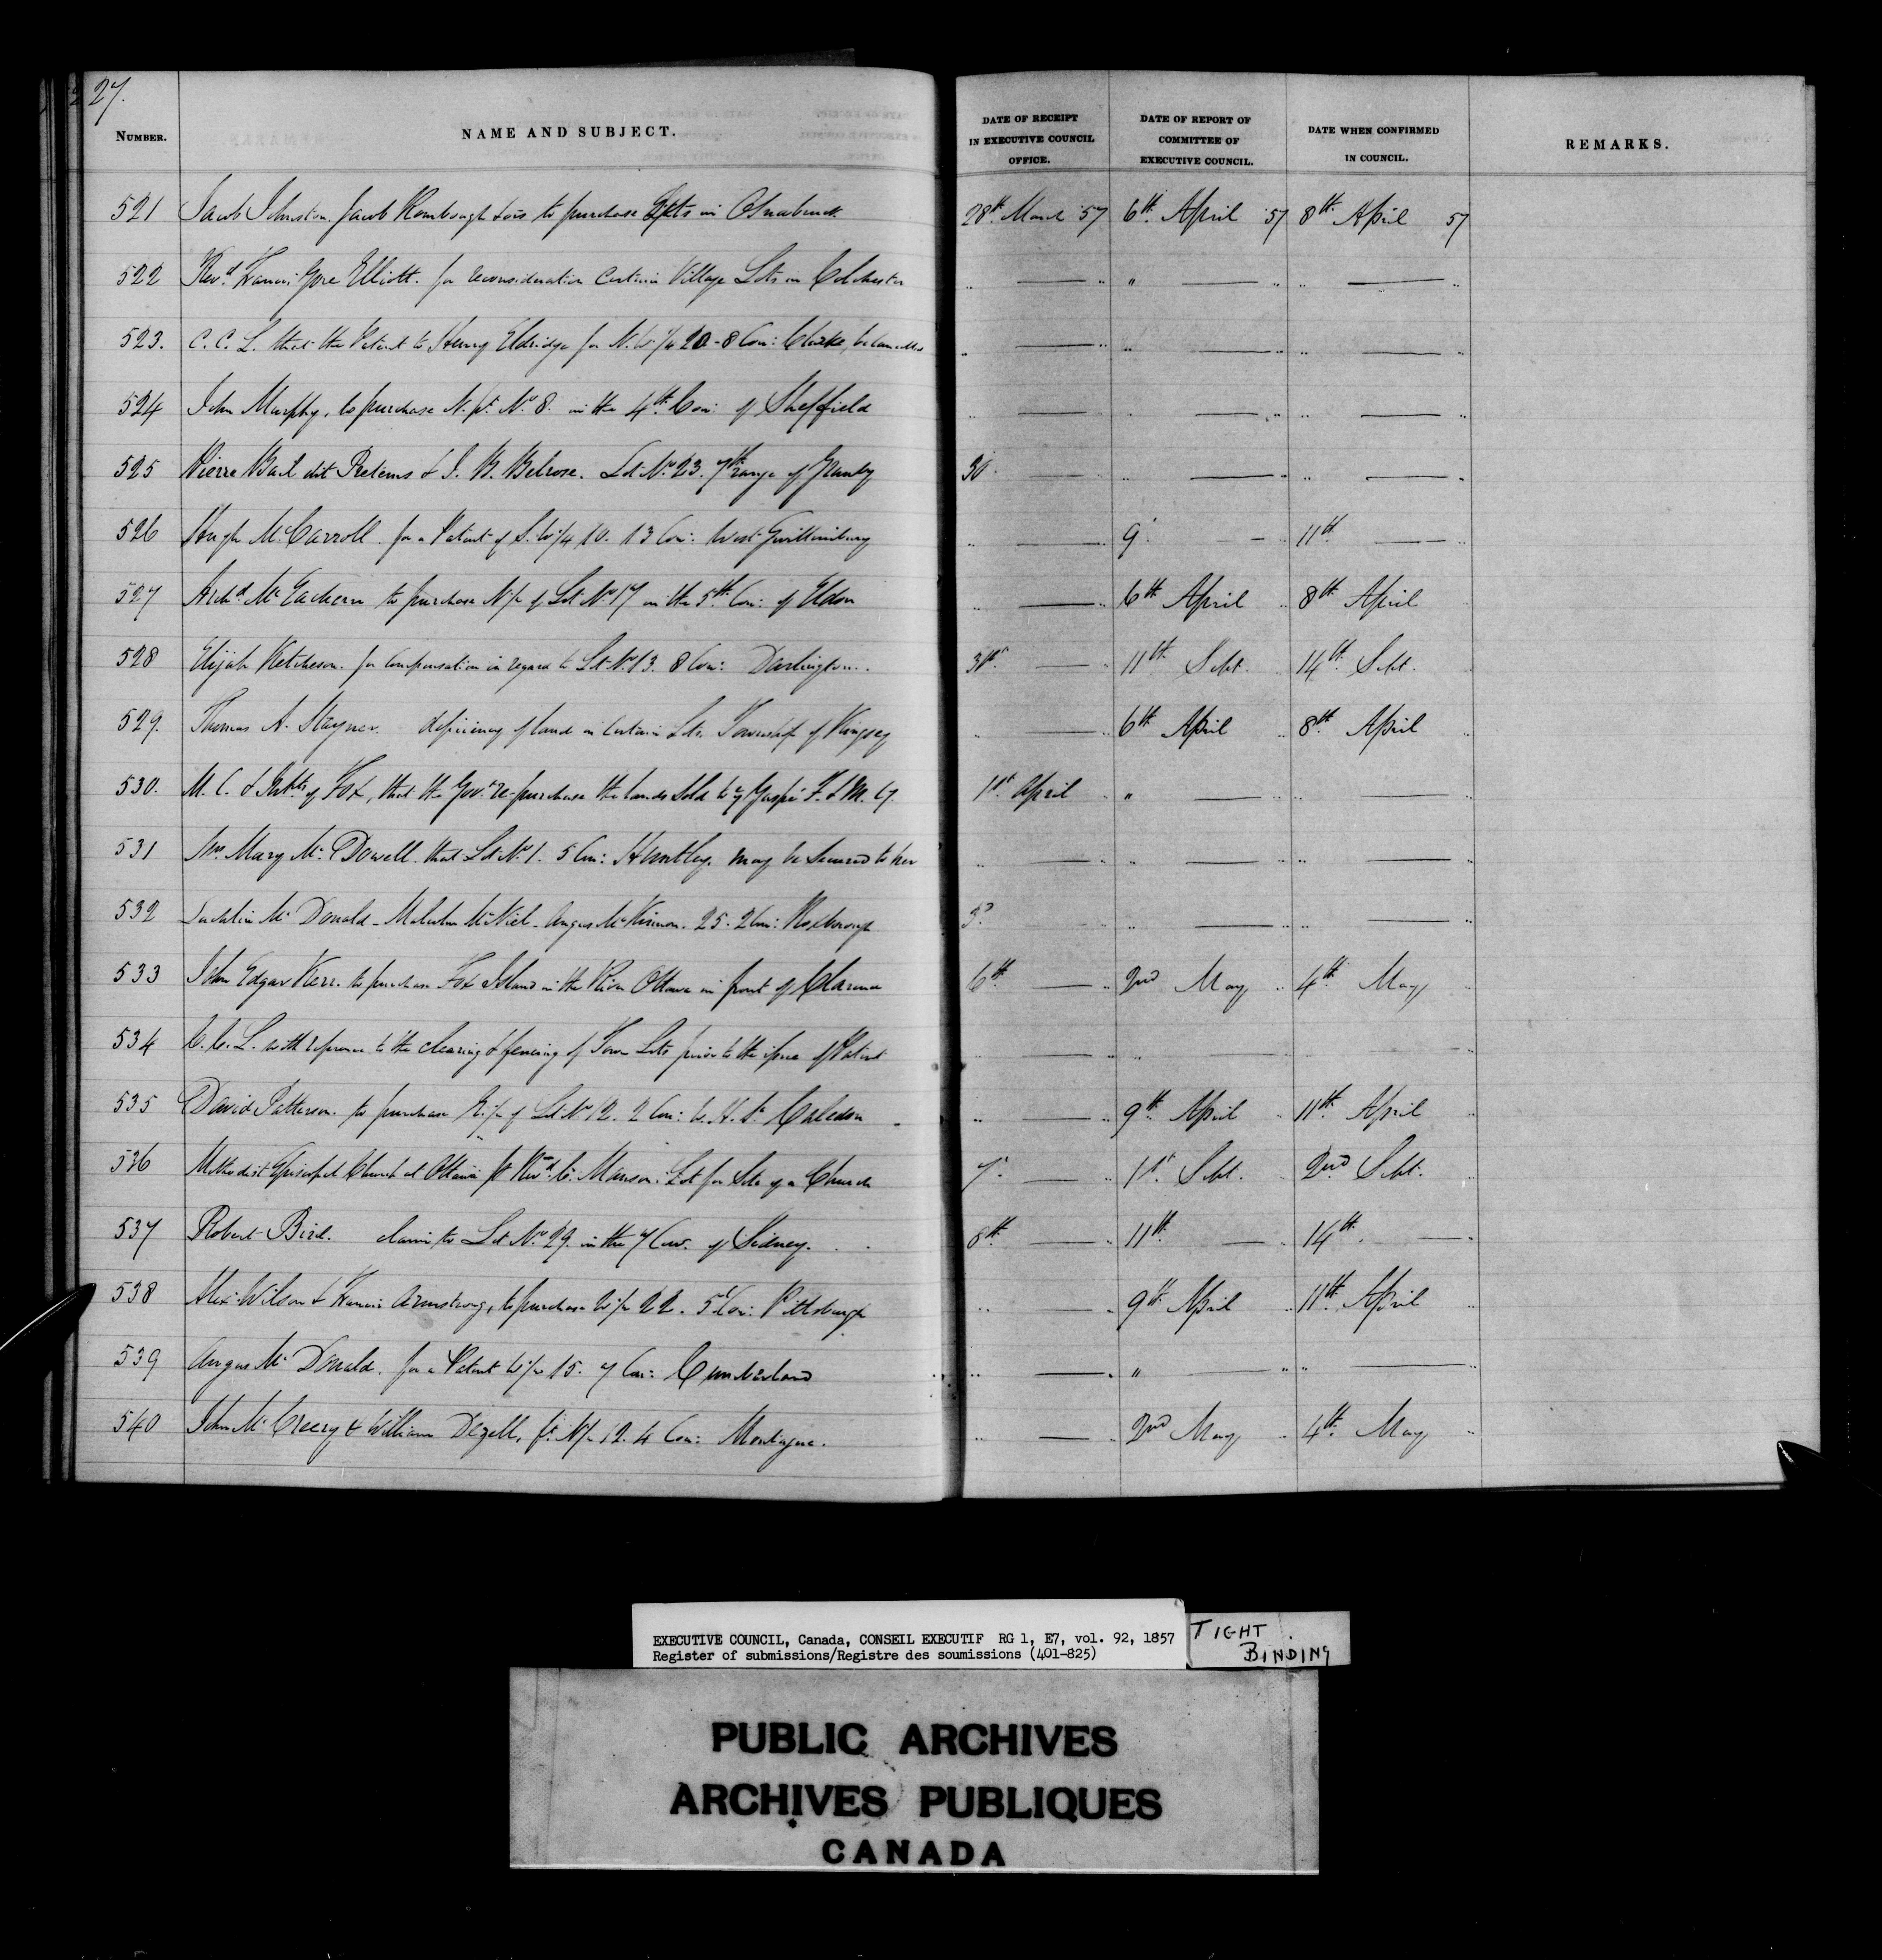 27.
NUMBER. NAME AND SUBJECT. DATE OF RECEIPT IN EXECUTIVE COUNCIL OFFICE. DATE OF REPORT OF COMMITTEE OF EXECUTIVE COUNCIL. DATE WHEN CONFIRMED IN COUNCIL. REMARKS.
521 Jacob Johnston. Jacob Rombough & ors to purchase Lots in Osnabruck 28th March 57 6th April 57 8th April 57
522 Revd. Francis Gore Elliott. for reconsideration certain Village Lots in Colchester .. — .. " — .. .. — ..
523. C. C. L. that the Patent to Henry Eldridge for N. W 1/4 20 - 8 Con: Clarke, be cancelled .. — .. .. — .. .. — ..
524 John Murphy, to purchase N. pt. No 8. in the 4th. Con: of Sheffield .. — .. .. — .. .. — ..
525 Pierre Bail dit Pretems & J. B. Belrose. Lot No 23. 7th range of Granby 30 — .. — .. .. — ..
526 Hugh McCarroll. for a Patent of S. W 1/4 10. 13 Con: West Gwillimbury .. — .. 9 — .. 11th — ..
527 Archd. McEachern to purchase N 1/2 of Lot No 17 in the 5th. Con: of Eldon .. — .. 6th April .. 8th April
528 Elijah Ketcheson. for compensation in regard to Lot No 13. 8 Con: Darlington. 31st — .. 11th Sept. .. 14th Sept.
529. Thomas A. Stayner. deficiency of land in certain Lots Township of Kingsey .. — .. 6th April .. 8th April ..
530. M. C. & Inhts of Fox, that the Govt. re-purchase the lands sold to ye Gaspé F. & M. Cy. 1st April .. " — .. .. — ..
531 Mrs Mary McDowell. that Lot No 1. 5 Con: Huntley may be secured to her .. — .. .. — .. .. — ..
532 Lachlin McDonald - Malcolm McNiel - Angus McKinnon. 25. 2 Con: Roxborough 3d .. — .. .. — ..
533 John Edgar Kerr. to purchase Fox Island in the River Ottawa in front of Clarence 6th — .. 2nd May .. 4th May
534 C. C. L. with reference to the clearing & fencing of Town Lots prior to the issue of Patent .. — .. .. — —
535 David Patterson. to purchase E. 1/2 of Lot No 12. 2 Con: W. H. S. Caledon .. — .. 9th April .. 11th April ..
536 Methodist Episcopal Church at Ottawa pr Revd. C. Manson: Lot for Site of a Church 7. — .. 1st. Sept. 2nd Sept. ..
537 Robert Bird. claim to Lot No 29. in the 7 Con. of Sidney. 8th — .. 11th — .. 14th. — ..
538 Alex: Wilson & Francis Armstrong, to purchase W 1/2 22. 5 Con: Pittsburgh .. — .. 9th April .. 11th April ..
539 Angus McDonald. for a Patent W 1/2 15. 7 Con: Cumberland .. — . " — .. .. — ..
540 John McCreery & William Dezell, pt. N 1/2 12. 4 Con: Montague. .. — .. 2nd May .. 4th May ..
EXECUTIVE COUNCIL, Canada, CONSEIL EXECUTIF RG 1, E7, vol. 92, 1857
Register of submissions/Registre des soumissions (401-825)
TIGHT BINDING
PUBLIC ARCHIVES
ARCHIVES PUBLIQUES
CANADA